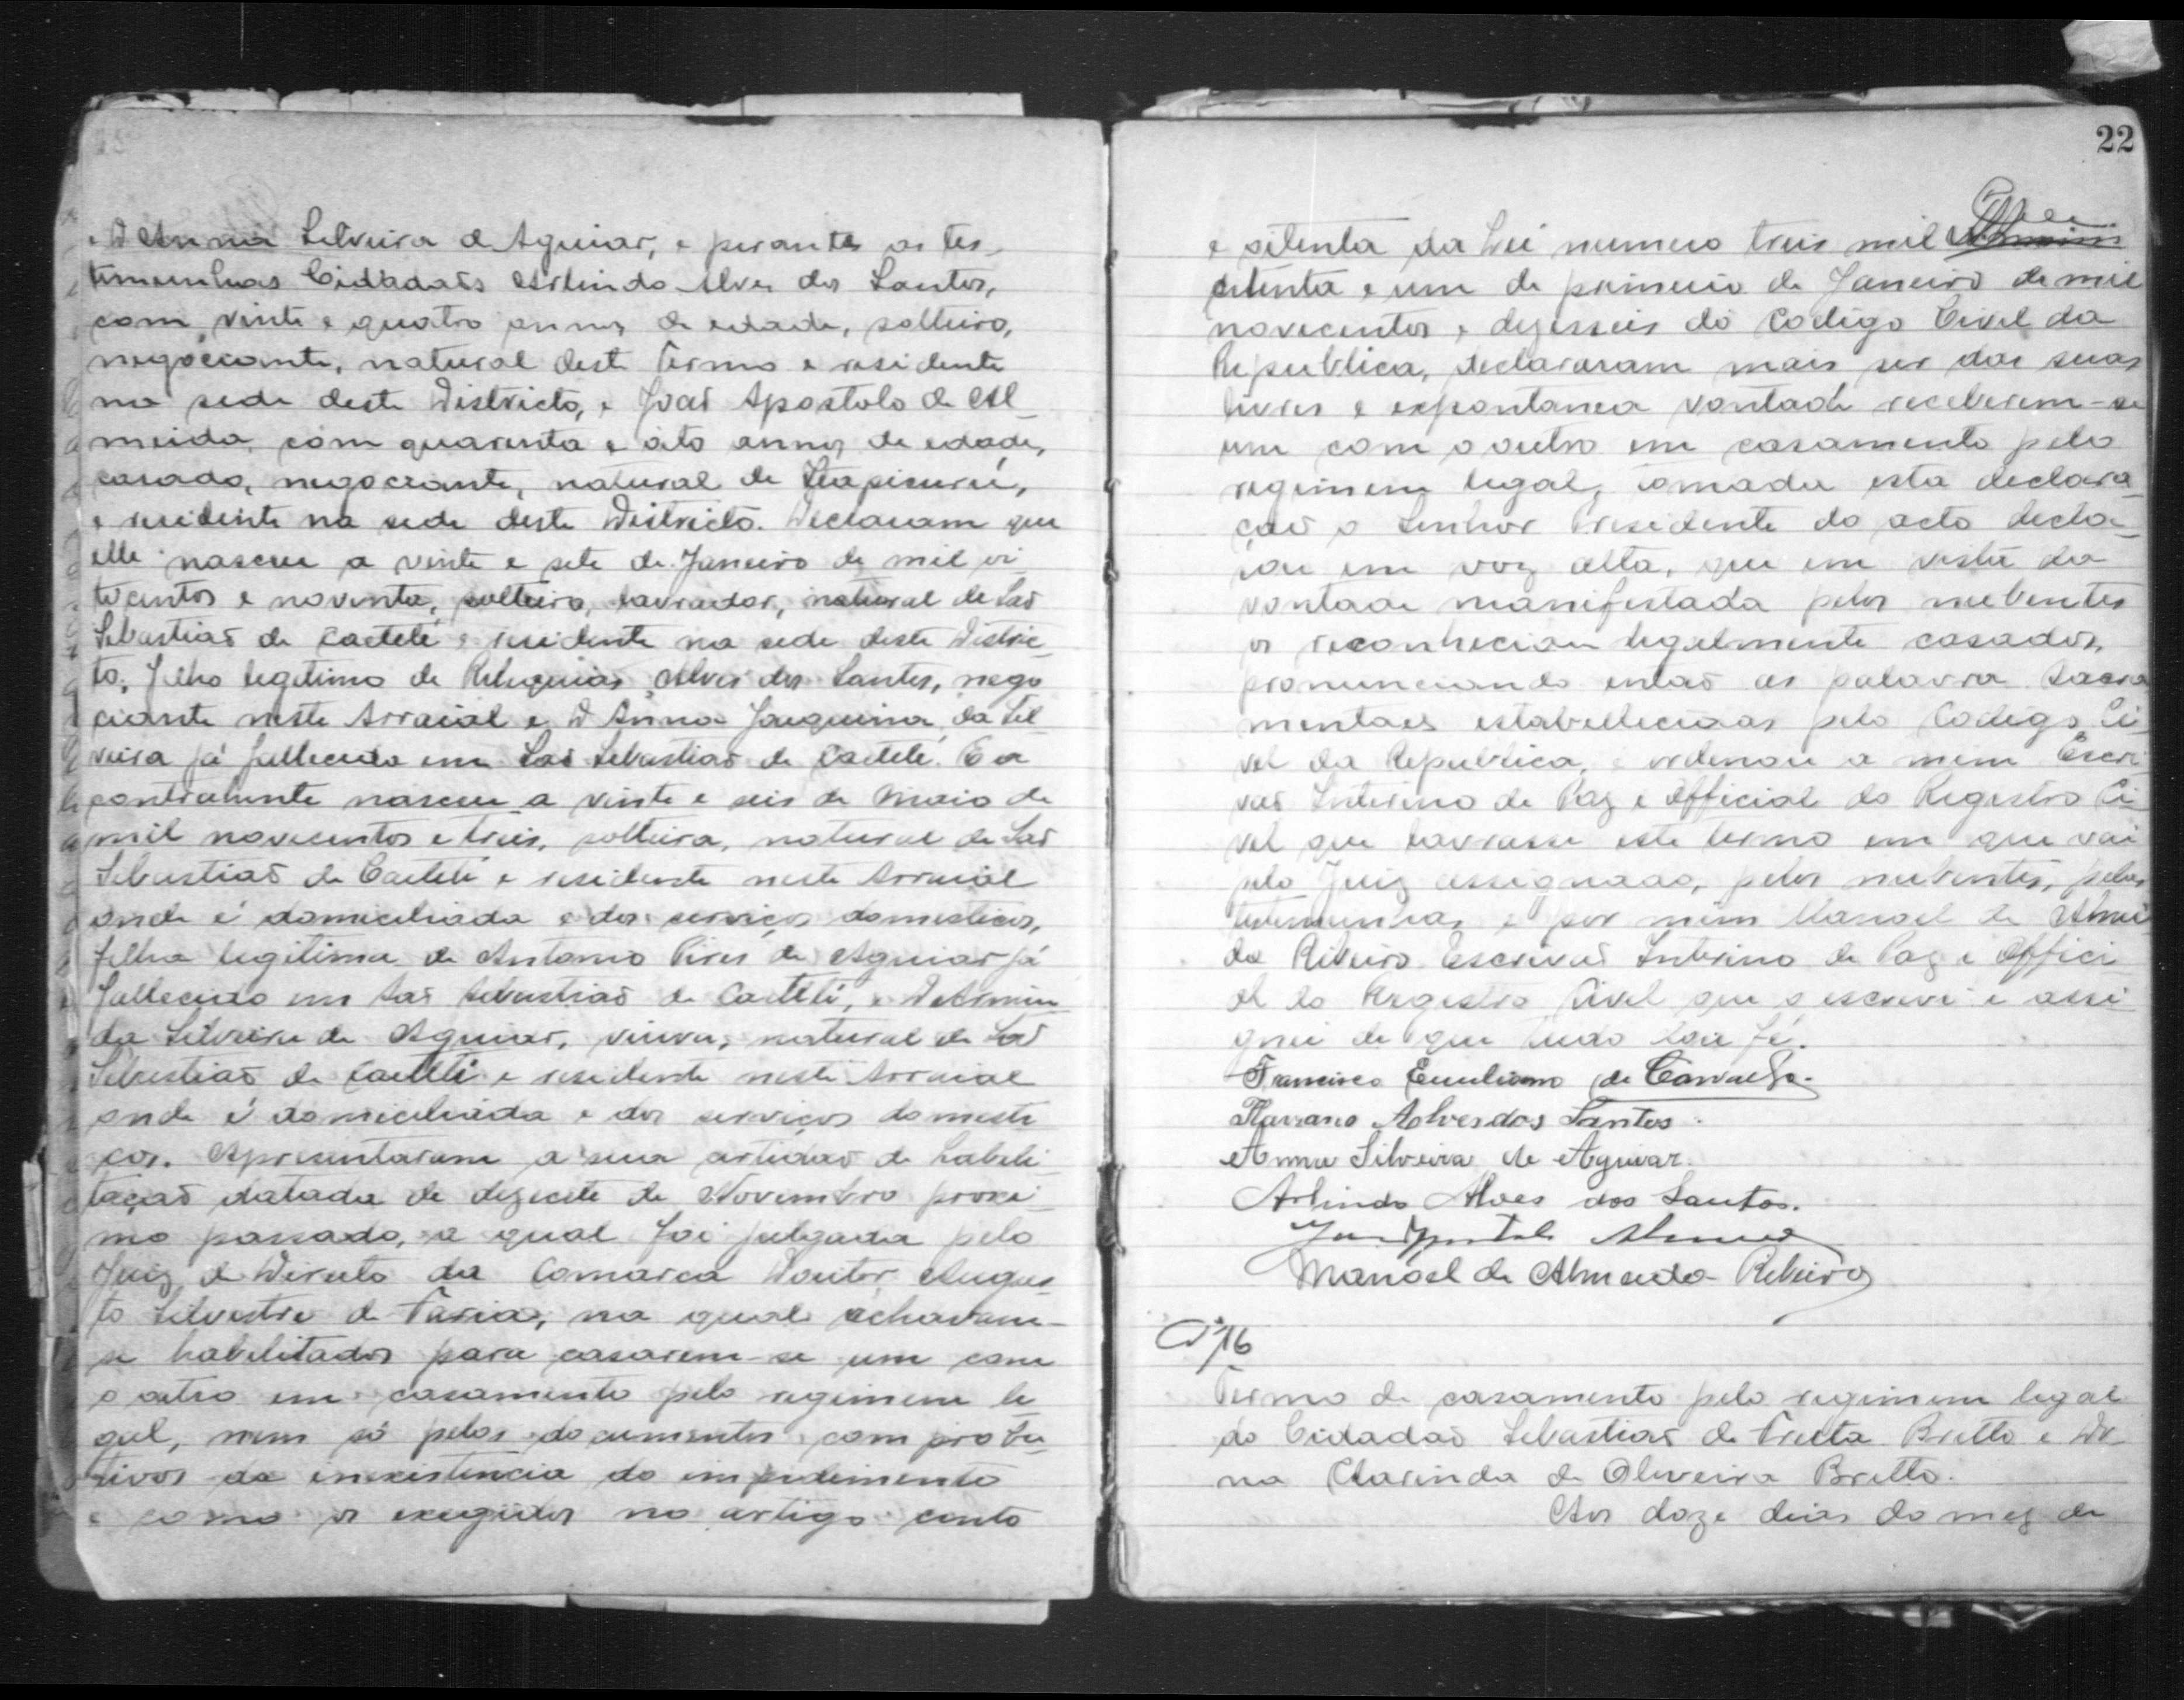 e D Anna Silveira de Aguiar, e perante as tes-
timunhas Cidadaõs Arlindo Alves dos Santos,
com vinte e quatro annos de edade, solteiro,
negociante, natural deste Termo e residente
na sede deste Districto, e Joaõ Apostolo de Al-
meida com quarenta e oito annos de edade,
casado, negociante, natural de Itapicurú,
e residente na sede deste Districto. Declararam que
elle nasceu a vinte e sete de Janeiro de mil oi-
tocentos e noventa, solteiro, lavrador, natural de Saõ
Sebastiaõ de Caeteté e residente na sede deste Distric-
to, filho legitimo de Alves dos Santos, nego
ciante neste Arraial e D Anna Joaquina da Sil
veira já fallecida em Saõ Sebastiaõ de Caeteté. E a
contraente nasceu a vinte e seis de Maio de
mil novecentos e treis, solteira, natural de Saõ
Sebastiaõ de Caeteté e residente neste Arraial
onde é domiciliada e dos serviços domesticos,
filha legitima de Antonio Pires de Aguiar já
fallecido em Saõ Sebastiaõ de Caeteté, e
da Silveira de Aguiar, viuva, natural de Saõ
Sebastiaõ de Caeteté e residente neste Arraial
onde é domiciliada e dos serviços domesti
cos. Apresentaram a sua de habili-
taçaõ datada de dezecete de Novembro proxi-
mo passado, a qual foi julgada pelo
Juiz de Direito da Comarca Doutor Augus-
to Silvestre de Faria, na qual achavam-
se habilitados para casarem-se um com
o outro em casamento pelo regimem le-
gal, nem só pelos documentos comproba-
tivos da inexistencia do impedimento
e como os exegidos no artigo cento
22
e oitenta da Lei numero treis mil
setenta e um de primeiro de Janeiro de mil
novecentos e dezesseis do Codigo Civel da
Republica, declararam mais ser das suas
livres e expontanea vontade receberem-se
um com o outro em casamento pelo
regimem legal, tomada esta declara-
çaõ o Senhor Presidente do acto decla-
rou em voz alta, que em vista da
vontade manifestada pelos nubentes
os reconhecia legalmente casados,
pronunciando entaõ as palavra Sacra
mentaes estabellecidas pelo Codigo Ci-
vel da Republica, e ordenou a mim Escri-
vaõ Interino de Paz e Official do Registro Ci-
vel que lavrasse este termo em que vai
pelo Juiz assignado, pelos nubentes, pelas
testemunhas e por mim Manoel de Almei
da Ribeiro Escrivaõ Interino de Paz e Offici-
al do Registro Civel que o escrevi e assi-
gnei de que tudo dou fé.
Francisco Emiliano de Carvalho.
Alves dos Santos
Anna Silveira de Aguiar.
Arlindo Alves dos Santos.
Almeida
Manoel de Almeida Ribeiro
Nº 16
Termo de casamento pelo regimem legal
do Cidadaõ Sebastiaõ de Britto e Do-
na Clarinda de Oliveira Britto.
Aos doze dias do mez de